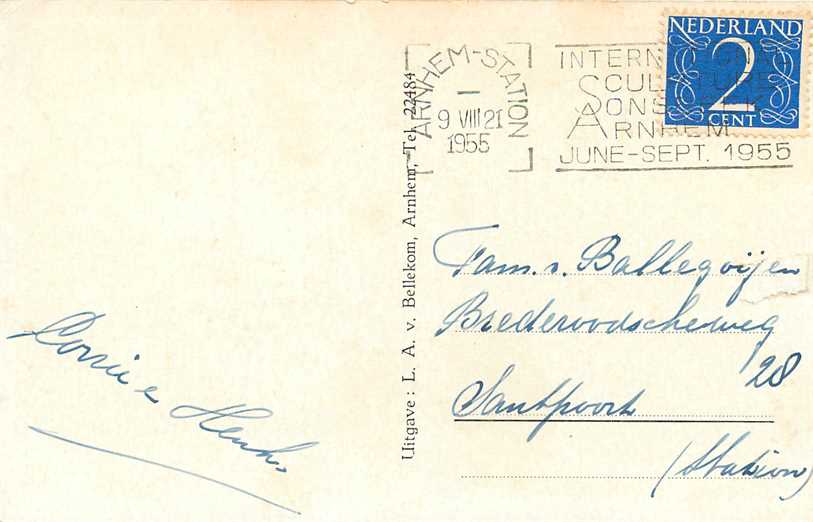 NEDERLAND
2
CENT
ARNHEM-STATION
9 VIII 21
1955
INTERNATIONAL
SCULPTURE
SONSBEEK
ARNHEM
JUNE-SEPT. 1955
Uitgave: L. A. v. Bellekom, Arnhem, Tel. 22484
Fam. v. Ballegoijen
Brederoodscheweg
28
Santpoort
(Station)
Corrie &
Henk.